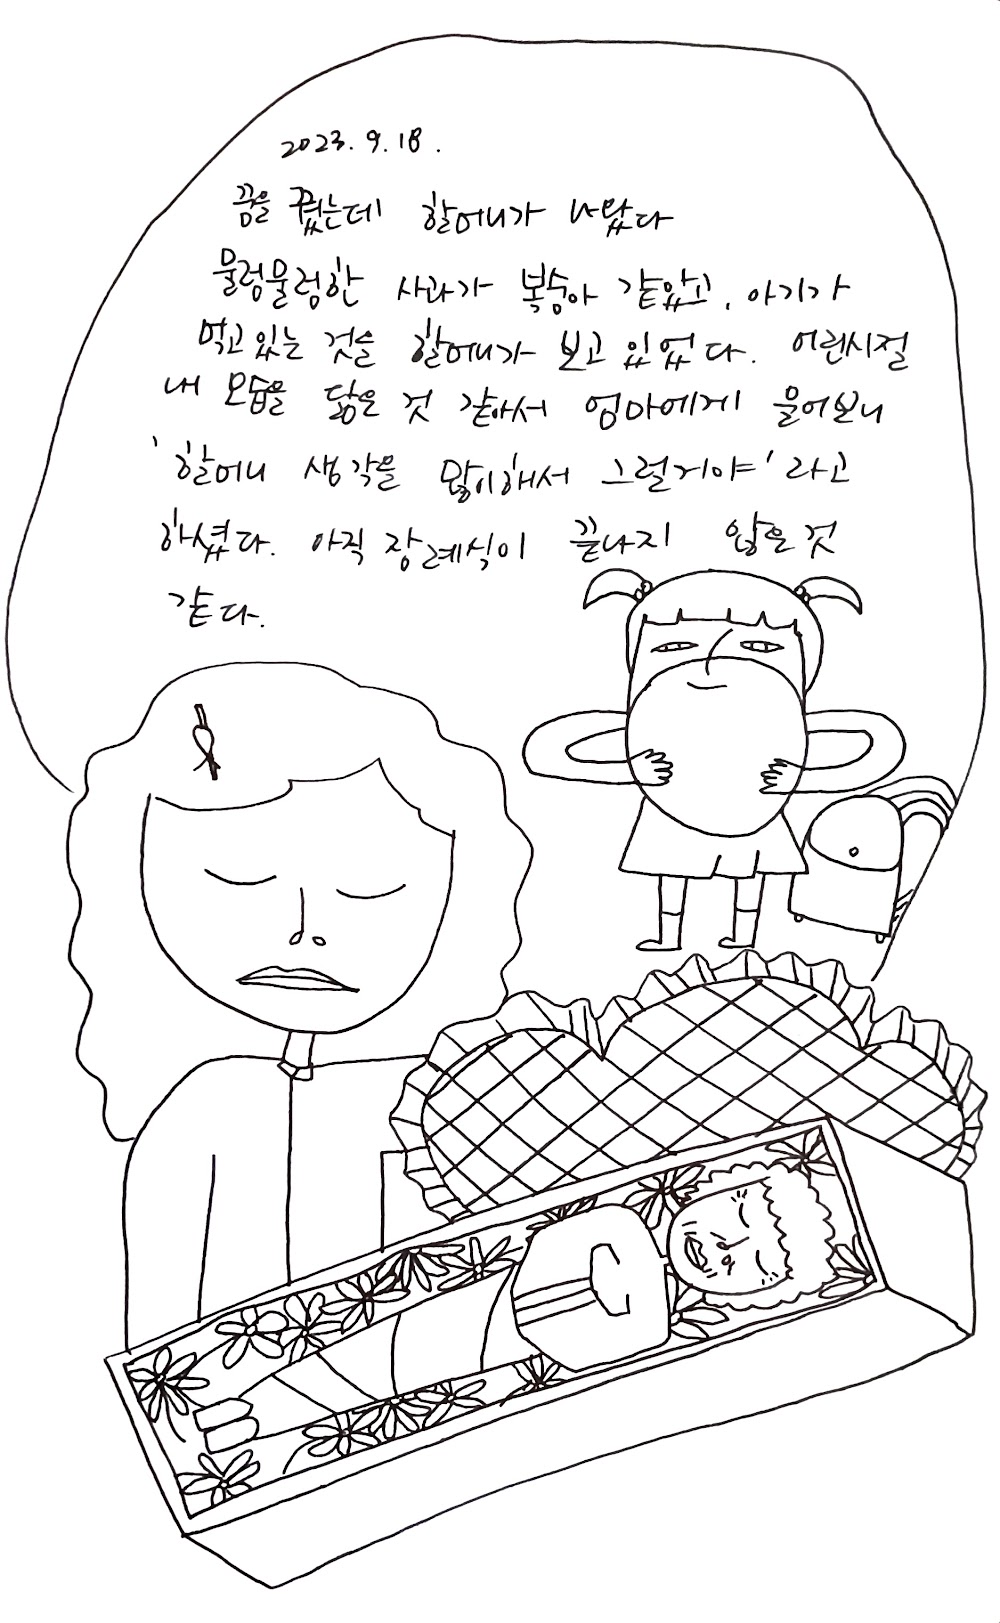 2023. 9. 18.
꿈을 꿨는데 할머니가 나왔다
물렁물렁한 사과가 복숭아 같았고, 아기가
먹고 있는 것을 할머니가 보고 있었다. 어린시절
내 모습을 닮은 것 같아서 엄마에게 물어보니
'할머니 생각을 많이해서 그럴거야' 라고
하셨다. 아직 장례식이 끝나지 않은 것
같다.